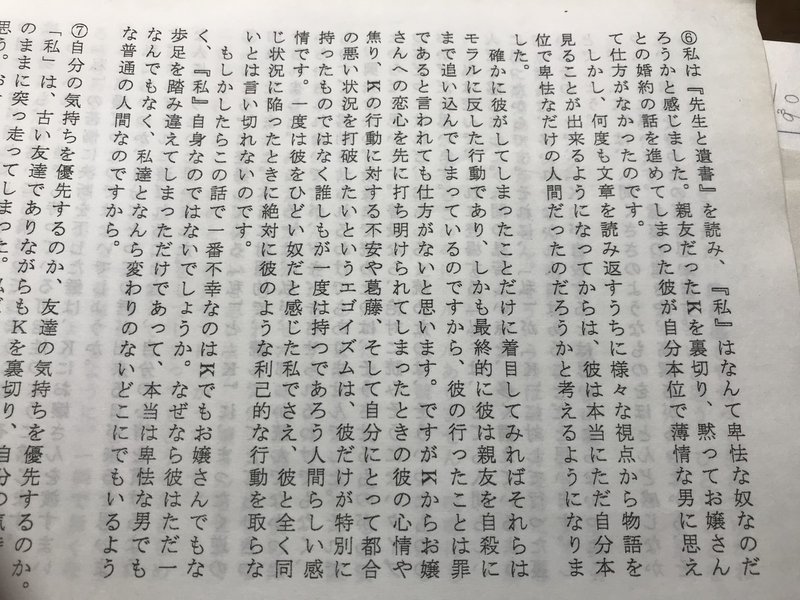 90
⑥私は『先生と遺書』を読み、『私』はなんて卑怯な奴なのだ
ろうかと感じました。親友だったKを裏切り、黙ってお嬢さん
との婚約の話を進めてしまった彼が自分本位で薄情な男に思え
て仕方がなかったのです。
しかし、何度も文章を読み返すうちに様々な視点から物語を
見ることが出来るようになってからは、彼は本当にただ自分本
位で卑怯なだけの人間だったのだろうかと考えるようになりま
した。
確かに彼がしてしまったことだけに着目してみればそれらは
モラルに反した行動であり、しかも最終的に彼は親友を自殺に
まで追い込んでしまっているのですから、彼の行ったことは罪
であると言われても仕方がないと思います。ですがKからお嬢
さんへの恋心を先に打ち明けられてしまったときの彼の心情や
焦り、Kの行動に対する不安や葛藤 そして自分にとって都合
の悪い状況を打破したいというエゴイズムは、彼だけが特別に
持ったものではなく誰しもが一度は持つであろう人間らしい感
情です。一度は彼をひどい奴だと感じた私でさえ、彼と全く同
じ状況に陥ったときに絶対に彼のような利己的な行動を取らな
いとは言い切れないのです。
もしかしたらこの話で一番不幸なのはKでもお嬢さんでもな
く、『私』自身なのではないでしょうか。なぜなら彼はただ一
歩足を踏み違えてしまっただけであって、本当は卑怯な男でも
なんでもなく、私達となんら変わりのないどこにでもいるよう
な普通の人間なのですから。
⑦自分の気持ちを優先するのか、友達の気持ちを優先するのか。
「私」は、古い友達でありながらもKを裏切り、自分の気持
のままに突っ走ってしまった。
思う。